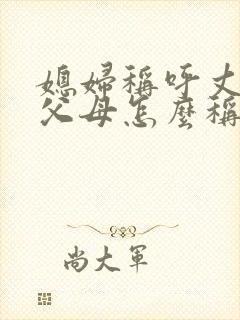 媳婦稱呼丈
父母怎麼稱
尚大軍